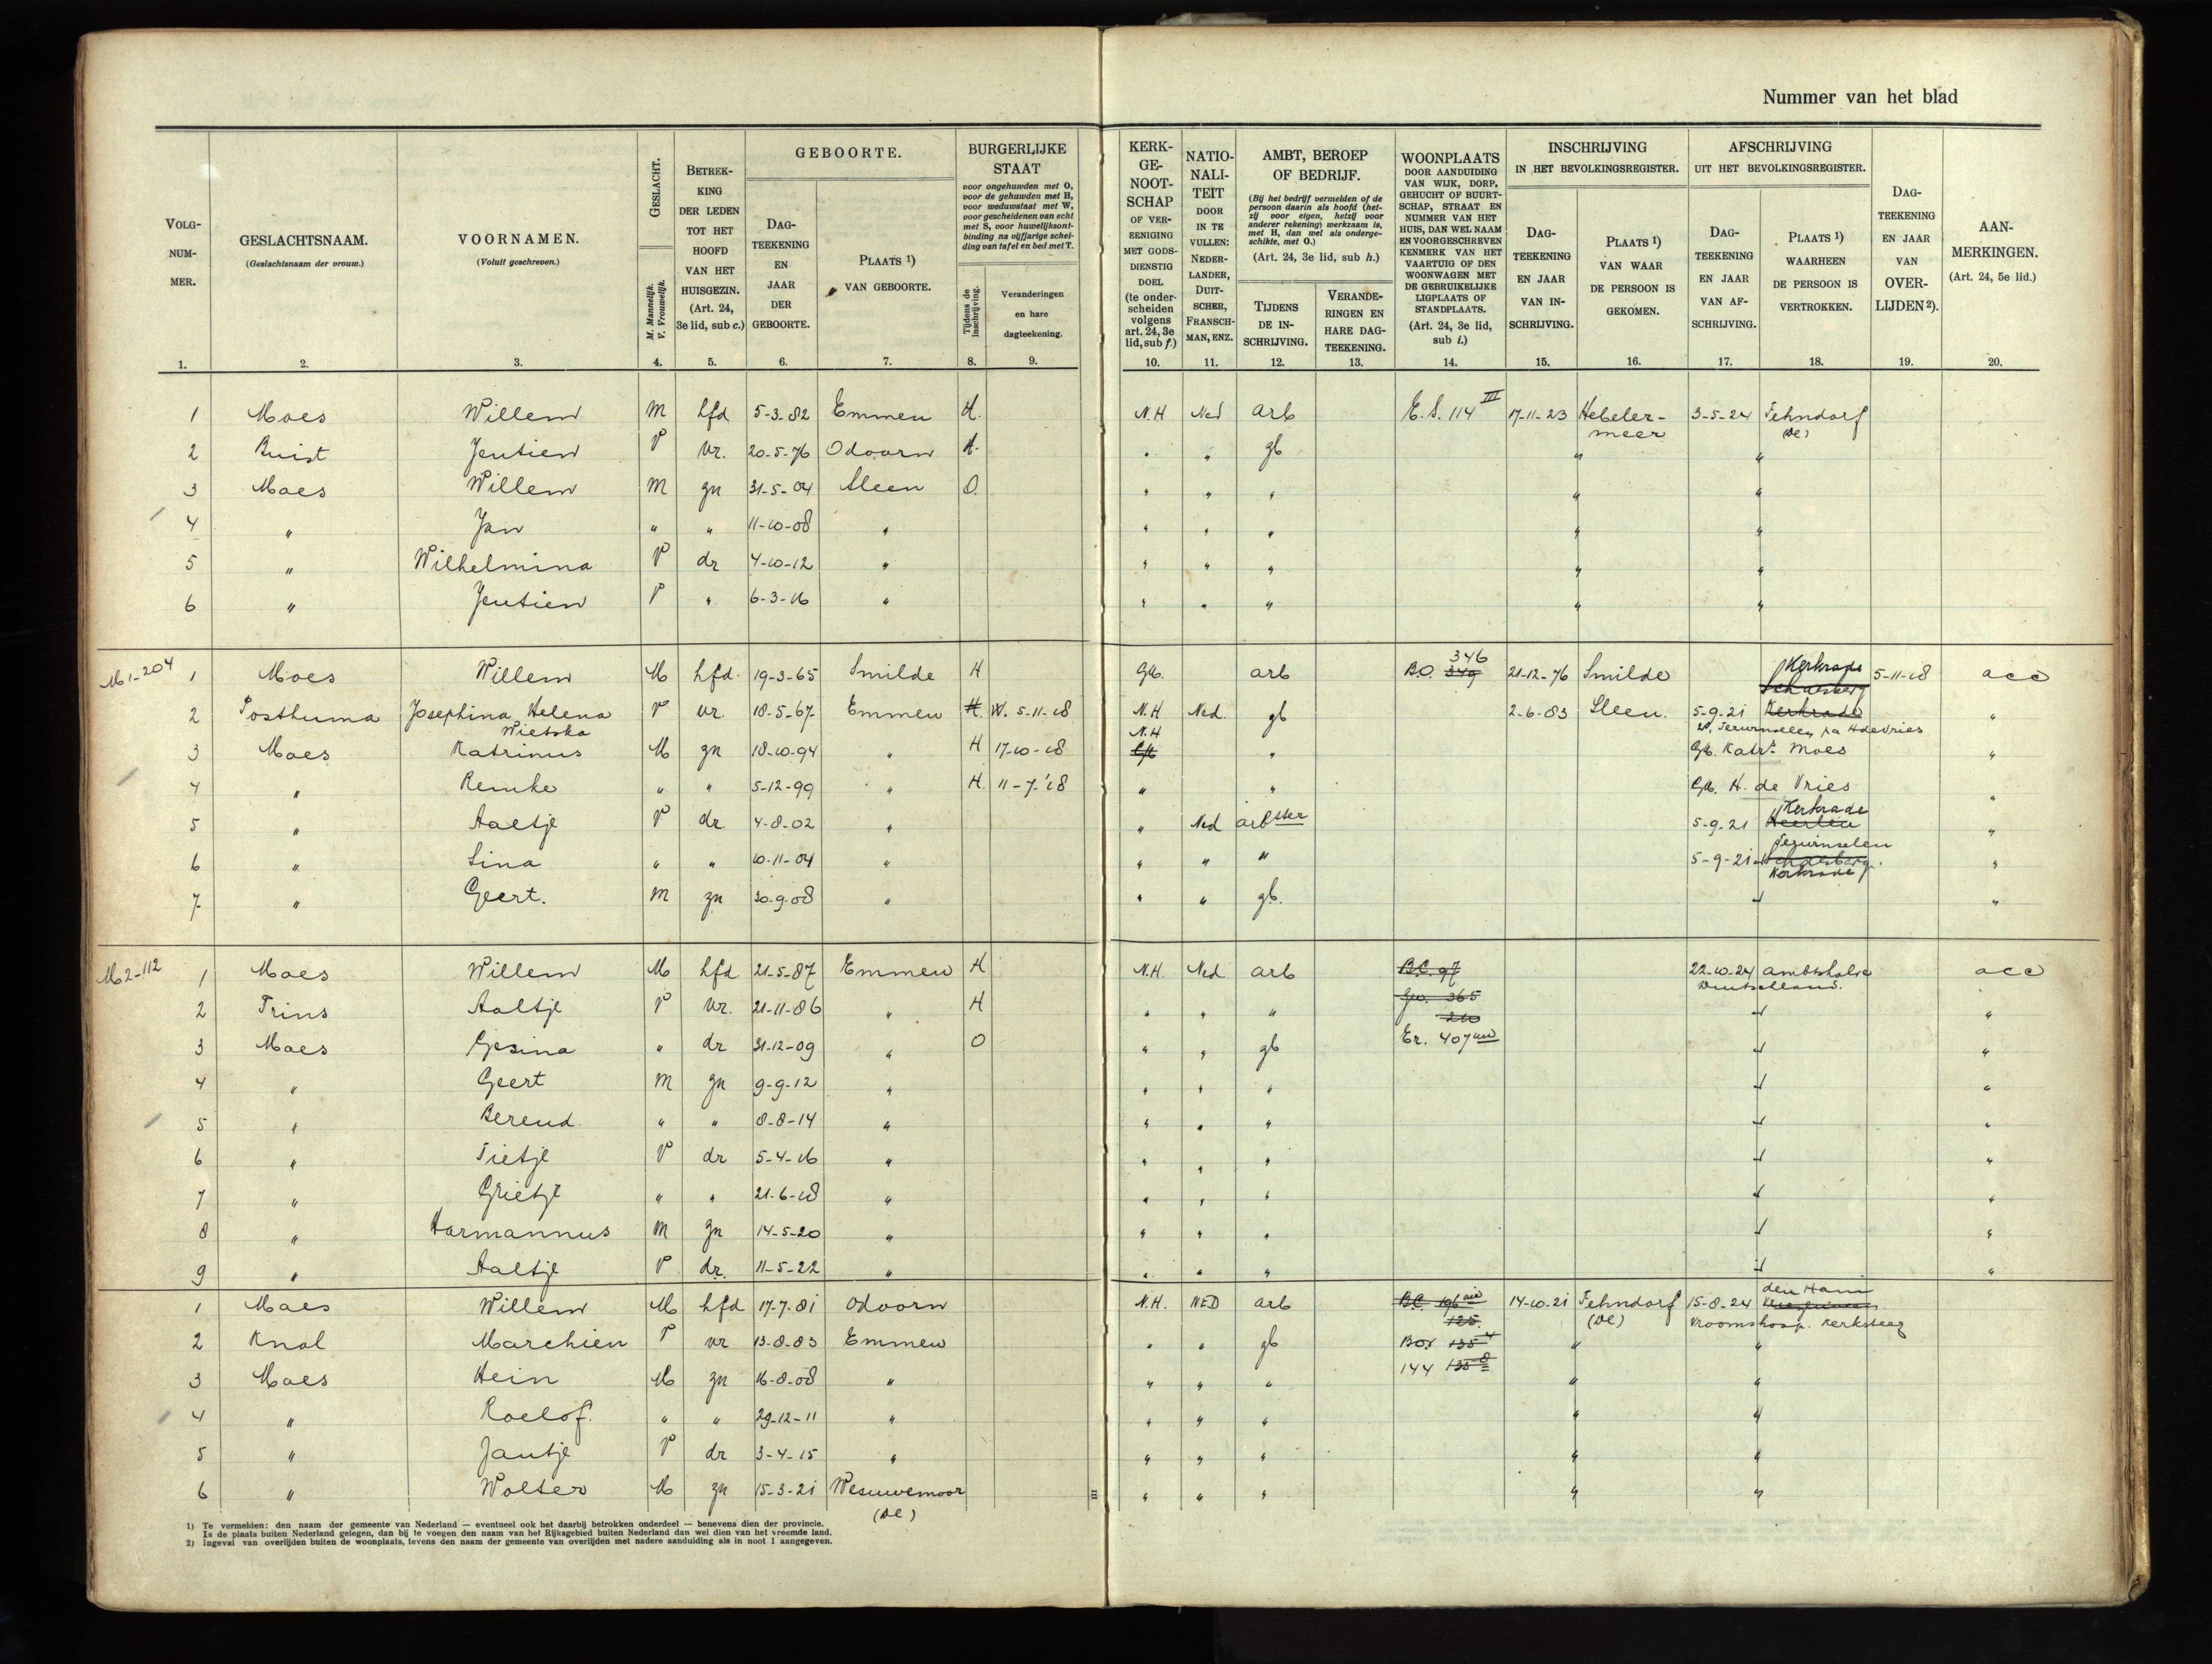 Nummer van het blad
VOLG-NUM-MER. 1.
GESLACHTSNAAM. (Geslachtsnaam der vrouw.) 2.
VOORNAMEN. (Voluit geschreven.) 3.
GESLACHT. M. Mannelijk. V. Vrouwelijk. 4.
BETREK-KING DER LEDEN TOT HET HOOFD VAN HET HUISGEZIN. (Art. 24, 3e lid, sub c.) 5.
GEBOORTE.
DAG-TEEKENING EN JAAR DER GEBOORTE. 6.
PLAATS 1) VAN GEBOORTE. 7.
BURGERLIJKE STAAT
voor ongehuwden met O,
voor de gehuwden met H,
voor weduwstaat met W,
voor gescheidenen van echt
met S, voor huwelijksont-
binding na vijfjarige schei-
ding van tafel en bed met T.
Tijdens de inschrijving. 8.
Veranderingen en hare dagteekening. 9.
KERK-GE-NOOT-SCHAP OF VER-EENIGING MET GODS-DIENSTIG DOEL (te onder-scheiden volgens art. 24, 3e lid, sub f.) 10.
NATIO-NALI-TEIT DOOR IN TE VULLEN: NEDER-LANDER, DUIT-SCHER, FRANSCH-MAN, ENZ. 11.
AMBT, BEROEP OF BEDRIJF.
(Bij het bedrijf vermelden of de
persoon daarin als hoofd (het-
zij voor eigen, hetzij voor
anderer rekening) werkzaam is,
met H, dan wel als onderge-
schikte, met O.)
(Art. 24, 3e lid, sub h.)
TIJDENS DE IN-SCHRIJVING. 12.
VERANDE-RINGEN EN HARE DAG-TEEKENING. 13.
WOONPLAATS
DOOR AANDUIDING
VAN WIJK, DORP,
GEHUCHT OF BUURT-
SCHAP, STRAAT EN
NUMMER VAN HET
HUIS, DAN WEL NAAM
EN VOORGESCHREVEN
KENMERK VAN HET
VAARTUIG OF DEN
WOONWAGEN MET
DE GEBRUIKELIJKE
LIGPLAATS OF
STANDPLAATS.
(Art. 24, 3e lid, sub i.) 14.
INSCHRIJVING IN HET BEVOLKINGSREGISTER.
DAG-TEEKENING EN JAAR VAN IN-SCHRIJVING. 15.
PLAATS 1) VAN WAAR DE PERSOON IS GEKOMEN. 16.
AFSCHRIJVING UIT HET BEVOLKINGSREGISTER.
DAG-TEEKENING EN JAAR VAN AF-SCHRIJVING. 17.
PLAATS 1) WAARHEEN DE PERSOON IS VERTROKKEN. 18.
DAG-TEEKENING EN JAAR VAN OVER-LIJDEN 2). 19.
AAN-MERKINGEN. (Art. 24, 5e lid.) 20.
1 Moes Willem M hfd 5-3-82 Emmen H. N.H Ned arb E.S. 114 III 17-11-23 Hebeler-meer 3-5-24 Fehndorf (De)
2 Buist Jentien V vr. 20-5-76 Odoorn H. " " gb " "
3 Moes Willem M zn 31-5-04 Sleen O. " " " " "
4 " Jan " " 11-10-08 " " " " " "
5 " Wilhelmina V dr 4-10-12 " " " " " "
6 " Jentien V " 6-3-16 " " " " " "
M1-204 1 Moes Willem M hfd. 19-3-65 Smilde H Gk. arb B.O. 349 346 21-12-76 Smilde Kerkrade Schaesberg 5-11-18 acc
2 Posthuma Josephina Helena Wietska V vr. 18-5-67 Emmen H. W. 5-11-18 N.H Ned. gb 2-6-83 Sleen. 5-9-21 Kerkrade "
3 Moes Katrinus M zn 18-10-94 " H 17-10-18 N.H Gk " Gk. Katrs Moes "
4 " Remke " " 5-12-99 " H. 11-7-'18 " " Gk. H. de Vries "
5 " Aaltje V dr. 4-8-02 " " Ned arbster 5-9-21 Kerkrade Heerlen "
6 " Lina " " 10-11-04 " " " " 5-9-21 Terwinselen Schaesberg. Kerkrade "
7 " Geert. M zn 30-9-08 " " " gb. " "
M2-112 1 Moes Willem M hfd 21-5-87 Emmen H N.H. Ned arb B.C. 97 22-10-24 ambtshalve Deutschland. acc
2 Trins Aaltje V vr. 21-11-86 " H " " " 365 " "
3 Moes Gesina " dr 31-12-09 " O " " gb Er. 407 " "
4 " Geert M zn 9-9-12 " " " " " "
5 " Berend " " 8-8-14 " " " " " "
6 " Tietje V dr 5-4-16 " " " " " "
7 " Grietje " " 21-6-18 " " " " " "
8 " Harmannus M zn 14-5-20 " " " " " "
9 " Aaltje V dr. 11-5-22 " " " " " "
1 Moes Willem M hfd 17-7-81 Odoorn N.H. NED arb B.C. 196 125. 14-10-21 Fehndorf (De) 15-8-24 den Ham Vroomshoop. Kerksteeg
2 Knol Marchien V vr 13-8-83 Emmen " " gb 135 " "
3 Moes Hein M zn 16-8-08 " " " " 144 135 " "
4 " Roelof. " " 29-12-11 " " " " " "
5 " Jantje V dr 3-4-15 " " " " " "
6 " Wolter M zn 15-3-21 Wesuwemoor (De) " " " " "
1) Te vermelden: den naam der gemeente van Nederland — eventueel ook het daarbij betrokken onderdeel — benevens dien der provincie.
Is de plaats buiten Nederland gelegen, dan bij te voegen den naam van het Rijksgebied buiten Nederland dan wel dien van het vreemde land.
2) Ingeval van overlijden buiten de woonplaats, tevens den naam der gemeente van overlijden met nadere aanduiding als in noot 1 aangegeven.